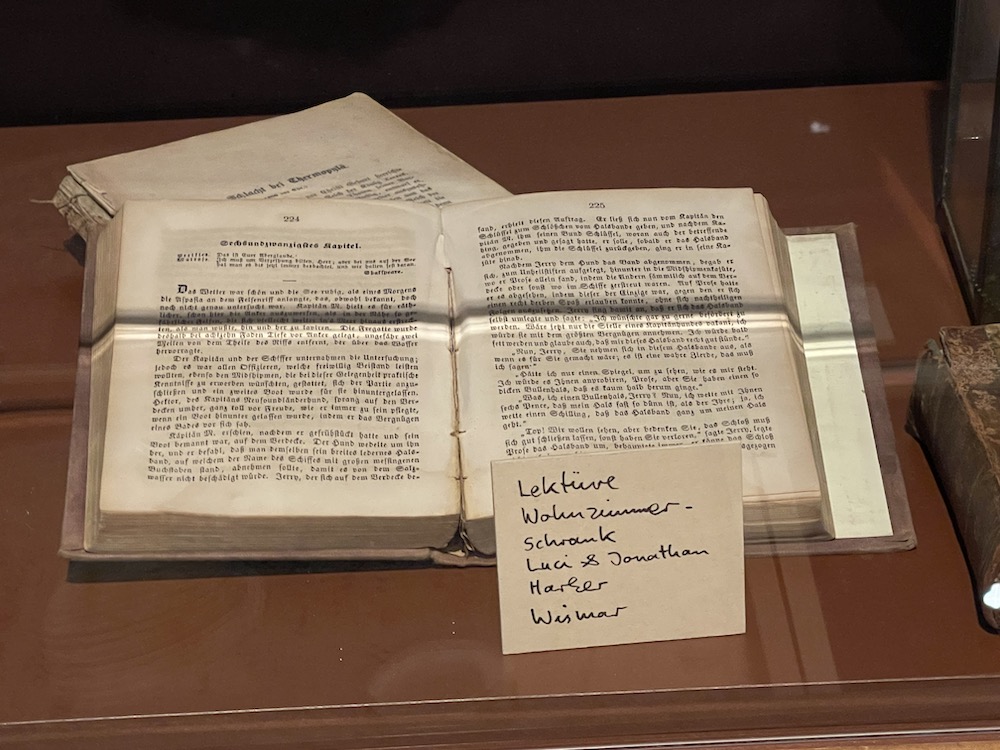 Schlacht bei Thermopylä.
224
Sechsundzwanzigstes Kapitel.
Das ist Euer Aberglaube.
Shakspeare.
Das Wetter war schön und die See ruhig, als eines Morgens
die Aspasia an dem Felsenriff anlangte, das, obwohl bekannt, doch
noch nicht genau untersucht war. Kapitän M. hielt es für räth-
licher, schon hier die Anker auszuwerfen, als in der Nähe so ge-
als man müßte, hin und her zu laviren. Die Fregatte wurde
deshalb bei acht Faden Tiefe vor Anker gelegt, ungefähr zwei
Meilen von dem Theile des Riffs entfernt, der über das Wasser
hervorragte.
Der Kapitän und der Schiffer unternahmen die Untersuchung;
jedoch es war allen Offizieren, welche freiwillig Beistand leisten
wollten, ebenso den Midshipmen, die bei dieser Gelegenheit praktische
Kenntnisse zu erwerben wünschten, gestattet, sich der Partie anzu-
schließen und ein zweites Boot wurde für sie hinuntergelassen.
Hektor, des Kapitäns Neufoundländerhund, sprang auf den Ver-
decken umher, ganz toll vor Freude, wie er immer zu sein pflegte,
wenn ein Boot hinunter gelassen wurde, indem er das Vergnügen
eines Bades vor sich sah.
Kapitän M. erschien, nachdem er gefrühstückt hatte und sein
Boot bemannt war, auf dem Verdecke. Der Hund wedelte um ihn
her, und er befahl, daß man demselben sein breites ledernes Hals-
band, auf welchem der Name des Schiffes mit großen messingenen
Buchstaben stand, abnehmen sollte, damit es von dem Salz-
wasser nicht beschädigt würde. Jerry, der sich auf dem Verdecke be-
225
fand, erhielt diesen Auftrag. Er ließ sich nun vom Kapitän den
Schlüssel zum Schlößchen vom Halsbande geben, und nachdem Ka-
pitän M. ihm seinen Bund Schlüssel, woran auch der betreffende
hing, gegeben und gesagt hatte, er solle, sobald er das Halsband
abgenommen, ihm die Schlüssel zurückgeben, ging er in seine Ka-
jüte hinab.
Nachdem Jerry dem Hund das Band abgenommen, begab er
sich, zum Unheilstiften aufgelegt, hinunter in die Midshipmenkajüte,
wo er Prose allein fand, indem die Andern sämmtlich auf dem Ver-
decke oder sonst wo im Schiffe zerstreut waren. Auf Prose hatte
er es abgesehen, indem dieser der Einzige war, gegen den er sich
einen recht derben Spaß erlauben konnte, ohne sich nachtheiligen
Folgen auszusetzen. Jerry fing damit an, daß er sich das Halsband
selbst umlegte und sagte: „Ich wünschte gar zu gerne befördert zu
werden. Wäre jetzt nur die Stelle eines Kapitänhundes vakant, ich
würde sie mit dem größten Vergnügen annehmen. Ich würde bald
fett werden und glaube auch, daß mir dieses Halsband recht gut stünde.“
„Nun, Jerry, Sie nehmen sich in diesem Halsbande aus, als
wenn es für Sie gemacht wäre; es ist eine wahre Zierde, das muß
ich sagen.“
„Hätte ich nur einen Spiegel, um zu sehen, wie es mir steht.
Ich würde es Ihnen anprobiren, Prose, aber Sie haben einen so
dicken Bullenhals, daß es kaum halb herum ginge.“
„Was, ich einen Bullenhals, Jerry? Nun, ich wette mit Ihnen
sechs Pence, daß mein Hals fast so dünn ist, als der Ihre; ja, ich
wette einen Schilling, daß das Halsband ganz um meinen Hals
geht.“
„Top! Wir wollen sehen, aber bedenken Sie, das Schloß muß
sich gut schließen lassen, sonst haben Sie verloren,“ sagte Jerry, legte
Prose das Halsband
Lektüre
Wohnzimmer-
schrank
Luci & Jonathan
Harker
Wismar